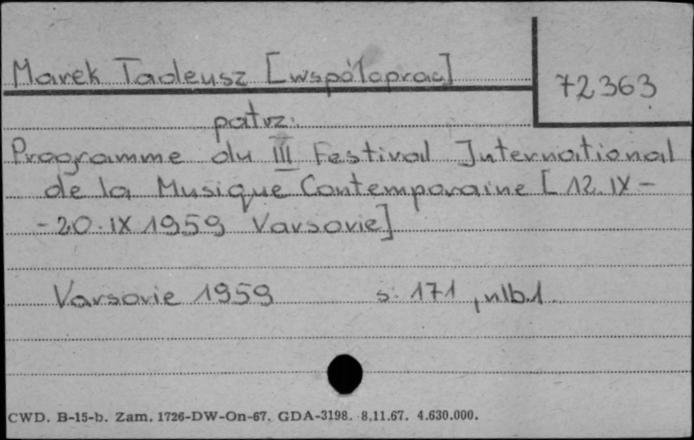 Marek Tadeusz [współoprac]
72363
patrz:
Programme du III Festival International
de la Musique Contemporaine [12.IX-
-20.IX 1959 Varsovie]
Varsovie 1959 s. 171, nlb.1.
CWD. B-15-b. Zam. 1726-DW-On-67. GDA-3198. 8.11.67. 4.630.000.